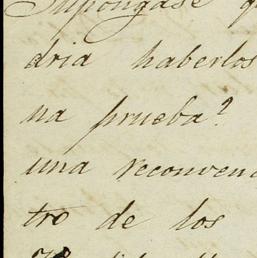 Supongase q
dria haberlos
na prueba?
una reconven
tro de los